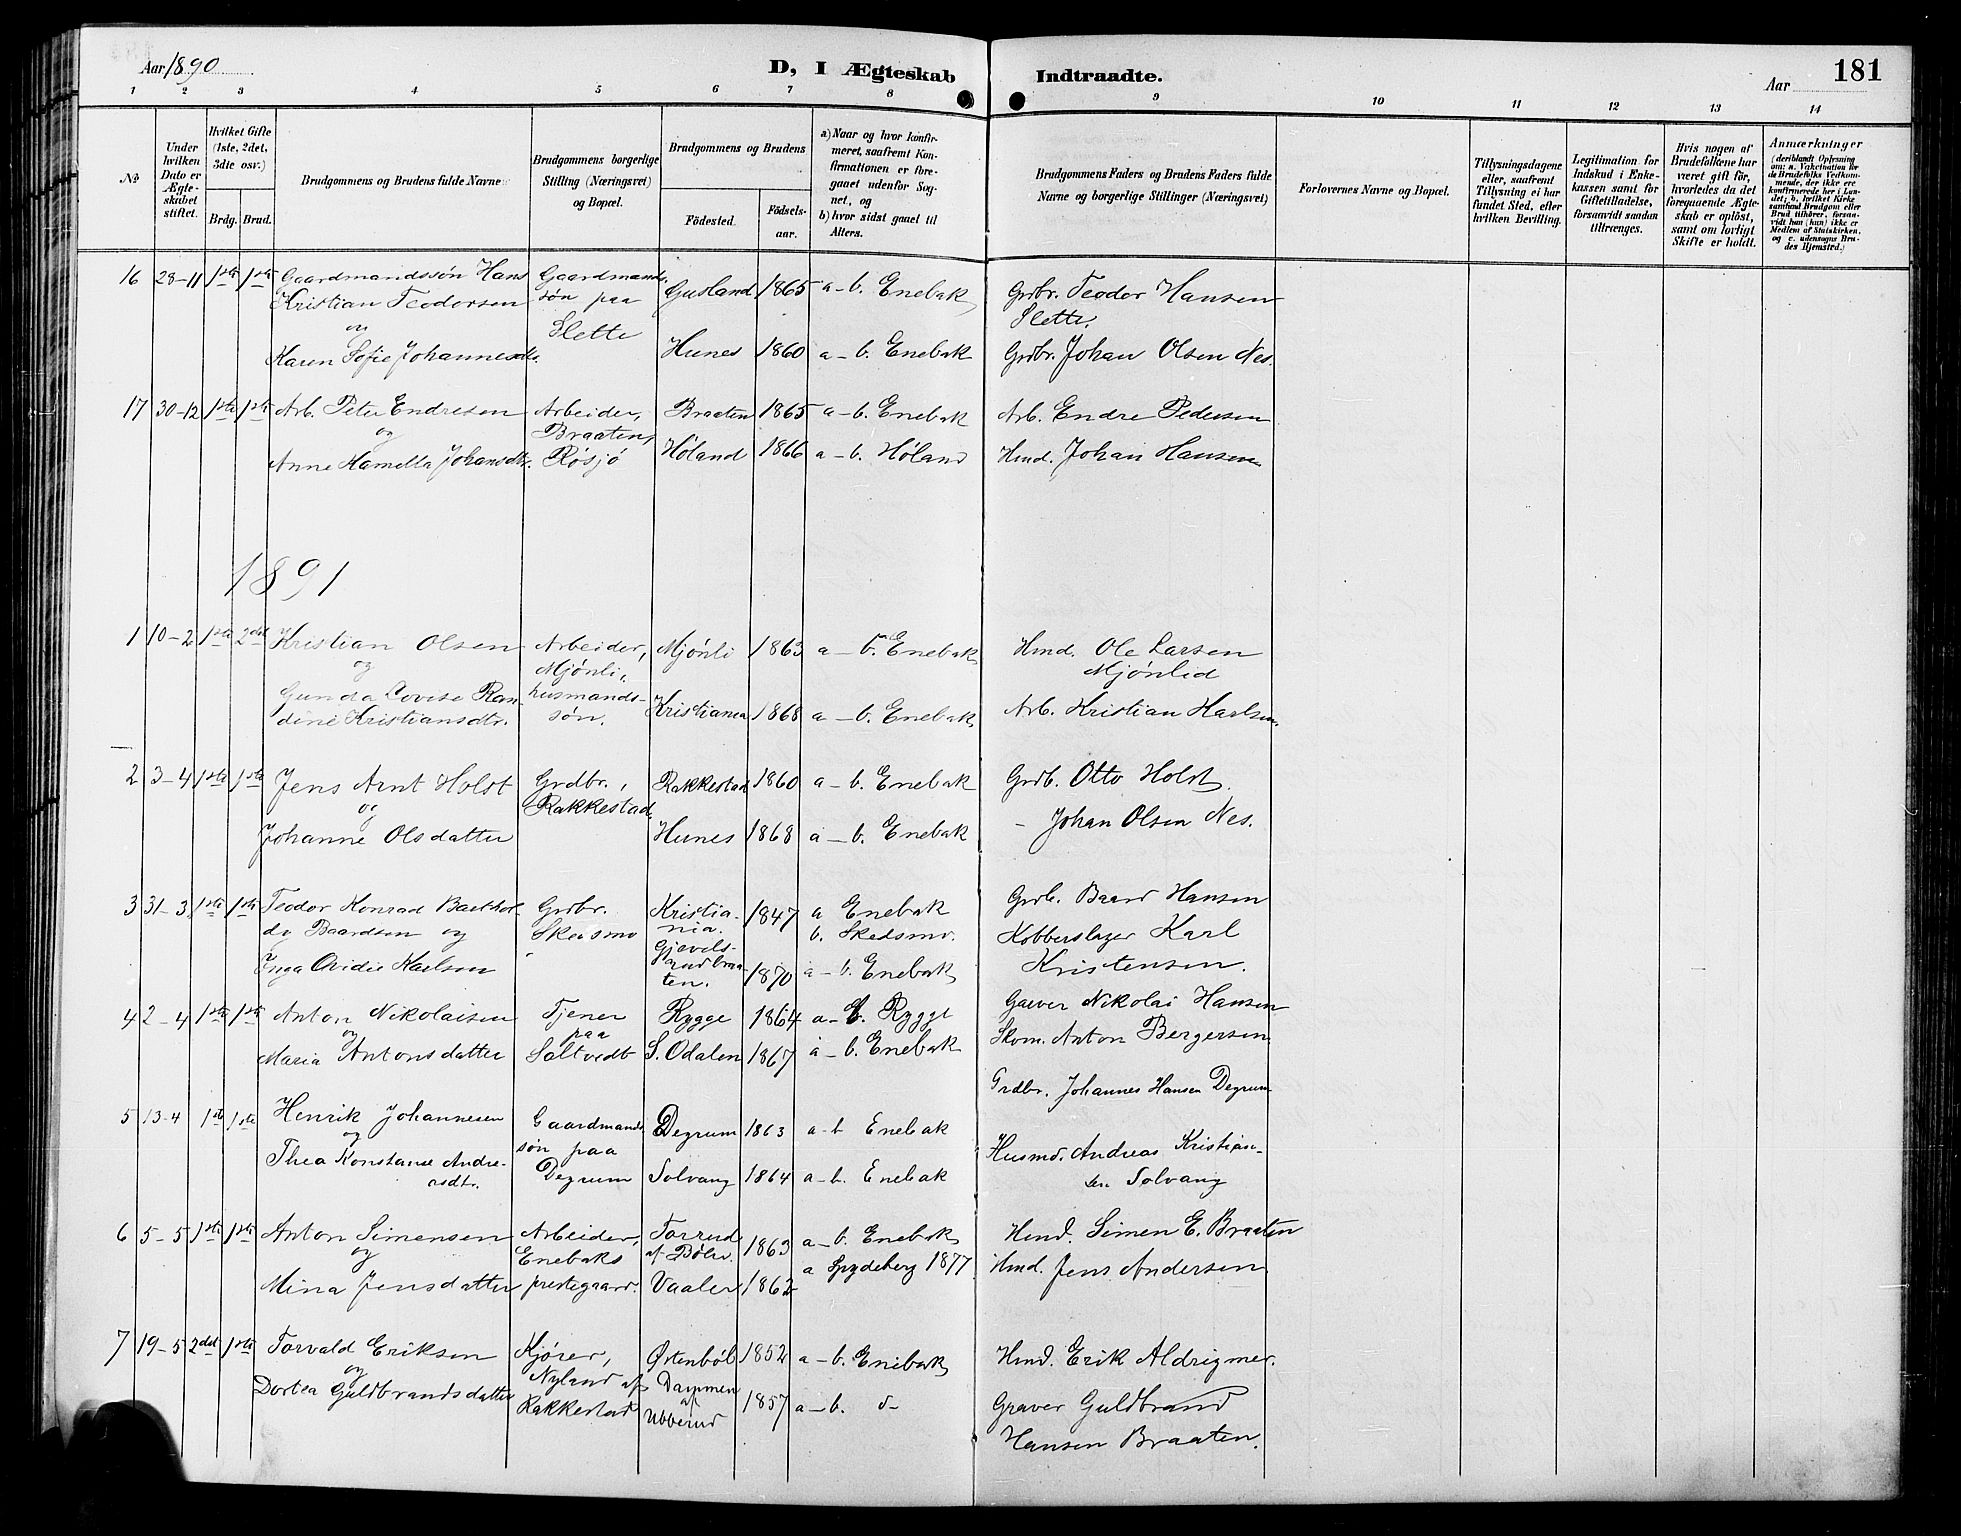 Aar 1890
D, I Ægteskab Indtraadte.
Aar
181
1 2 3 4 5 6 7 8 9 10 11 12 13 14
No
Under hvilken Dato er Ægteskabet stiftet.
Hvilket Gifte (1ste, 2det, 3die osv.)
Brdg. Brud.
Brudgommens og Brudens fulde Navne
Brudgommens borgerlige Stilling (Næringsvei) og Bopæl.
Brudgommens og Brudens
Fødested.
Fødselsaar.
a) Naar og hvor konfirmeret, saafremt Konfirmationen er foregaaet udenfor Sognet, og
b) hvor sidst gaaet til Alters.
Brudgommens Faders og Brudens Faders fulde Navne og borgerlige Stillinger (Næringsvei)
Forlovernes Navne og Bopæl.
Tillysningsdagene eller, saafremt Tillysning ei har fundet Sted, efter hvilken Bevilling.
Legitimation for Indskud i Enkekassen samt for Giftetilladelse, forsaavidt saadan tiltrænges.
Hvis nogen af Brudefolkene har været gift før, hvorledes da det foregaaende Ægteskab er opløst, samt om lovligt Skifte er holdt.
Anmærkninger
16 28-11 1ste 1ste Gaardmandssøn Hans Gaardmands- Gusland 1865 a-b. Enebak Grbr. Teodor Hansen
Kristian Teodorsen søn paa Slette.
og Slette
Karen Sofie Johannesdtr. Hunes 1860 a-b. Enebak Grdbr. Johan Olsen Nes.
17 30-12 1ste 1ste Arb. Peter Endresen Arbeider, Braaten 1865 a-b. Enebak Arb. Endre Pedersen
og Braaten,
Anne Hamella Johansdtr. Røsjø Høland 1866 a-b. Høland Hmd. Johan Hansen
1891
1 10-2 1ste 2det Kristian Olsen Arbeider, Mjønli 1863 a-b. Enebak Hmd. Ole Larsen
og Mjønli, Mjønlid
Gunda Lovise Ran- husmands-
dine Kristiansdtr. søn. Kristiania 1868 a-b. Enebak Arb. Kristian Karlsen.
2 3-4 1ste 1ste Jens Arnt Holst Grdbr., Rakkestad 1860 a-b. Enebak Grdb. Otto Holst.
og Rakkestad.
Johanne Olsdatter Hunes 1868 a-b. Enebak - Johan Olsen Nes.
3 31-3 1ste 1ste Teodor Konrad Barthol- Grdbr. Kristia- 1847 a Enebak Grdb. Baard Hansen
dy Baardsen og Skedsmo nia. b. Skedsmo. Kobberslager Karl
Inga Ovidie Karlsen Gjevels- rudbraa- ten. 1870 a-b. Enebak Kristensen.
4 2-4 1ste 1ste Anton Nikolaisen Tjener Rygge 1864 a-b. Rygge Gaever Nikolai Hansen
og paa
Maria Antonsdatter Saltvedt S. Odalen 1867 a-b. Enebak Skom. Anton Bergersen
5 13-4 1ste 1ste Henrik Johannesen Gaardmands Degrum 1863 a-b Enebak Grdbr. Johannes Hansen Degrum
og søn paa
Thea Konstanse Andre- Degrum Solvang 1864 a-b. Enebak Husmd. Andreas Kristian-
asdtr. sen Solvang
6 5-5 1ste 1ste Anton Simensen Arbeider, Torrud 1863 a-b. Enebak Hmd. Simen E. Braaten
og Enebaks af Bøler.
Mina Jensdatter prestegaard. Vaaler 1862 a Spydeberg 1877 Hmd. Jens Andersen
7 19-5 2det 1ste Torvald Eriksen Kjører, Østenbøl 1852 a-b. Enebak Hmd. Erik Aldrigmer.
og Nyland af Dammen
Dortea Guldbrandsdatter Rakkestad af Ubberud 1857 a-b. d- Graver Guldbrand
Hansen Braaten.